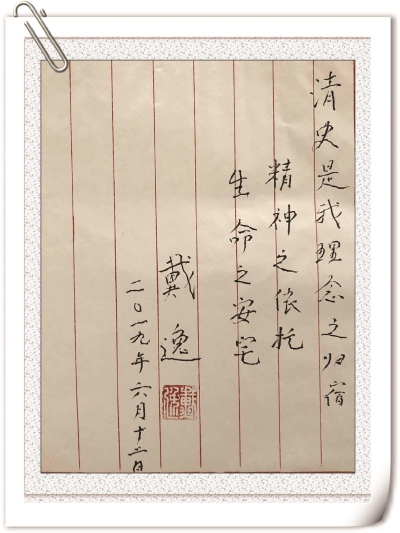 清史是我理念之归宿
精神之依托
生命之安宅
戴逸
二〇一九年六月十二日
戴逸